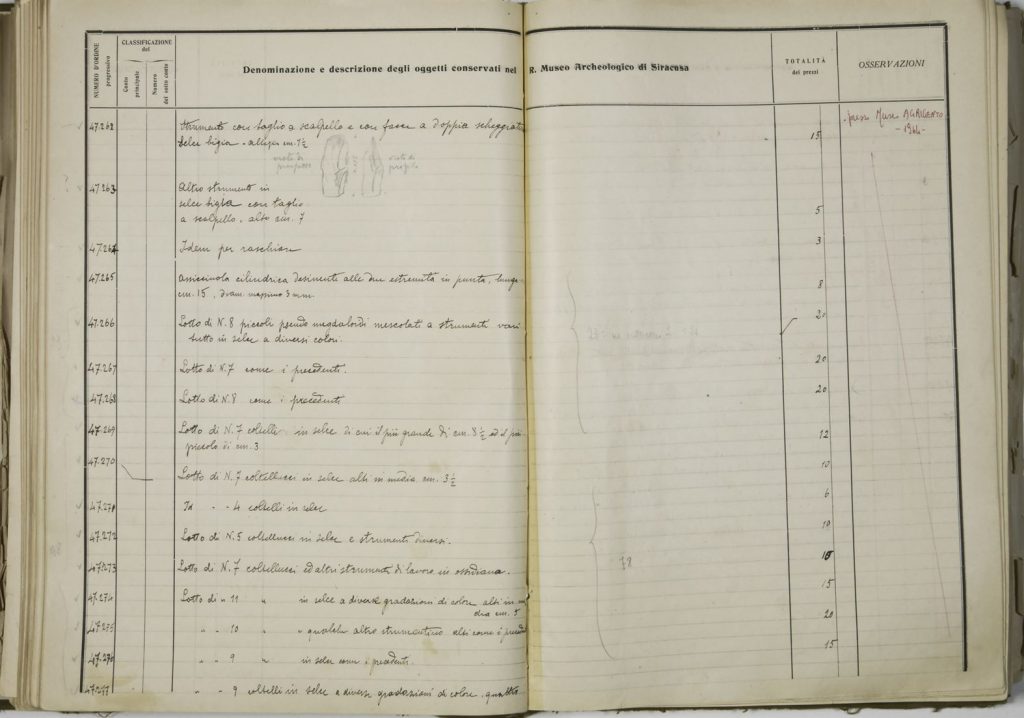 NUMERO D'ORDINE progressivo
CLASSIFICAZIONE del
Conto principale
Numero del sotto conto
Denominazione e descrizione degli oggetti conservati nel R. Museo Archeologico di Siracusa
TOTALITÀ dei prezzi
OSSERVAZIONI
47.262 Strumento con taglio a scalpello e con facce a doppia scheggiat 15 presso Museo AGRIGENTO
selce bigia - alta cm. 7½ - 1964 -
vista di prospetto vista di profilo
47.263 Altro strumento in
selce bigia con taglio
a scalpello. alto cm. 7 5
47.264 Idem per raschiare 3
47.265 Assicciola cilindrica desinente alle due estremità in punta, lunga
cm. 15, diam. massimo 3 mm. 8
47.266 Lotto di N. 8 piccoli pseudo magdaloidi mescolati a strumenti vari 20
tutto in selce a diversi colori.
47.267 Lotto di N. 7 come i precedenti. 20
47.268 Lotto di N. 8 come i precedenti 20
47.269 Lotto di N. 7 coltelli in selce di cui il più grande di cm. 8½ ed il più 12
piccolo di cm. 3
47.270 Lotto di N. 7 coltellucci in selce alti in media cm. 3½ 10
47.271 Id " " 4 coltelli in selce 6
47.272 Lotto di N. 5 coltellucci in selce e strumenti diversi. 10
47.273 Lotto di N. 7 coltellucci ed altri strumenti di lavoro in ossidiana. 15
47.274 Lotto di " 11 " in selce a diverse gradazioni di colore alti in me 15
dia cm. 5
47.275 " " 10 " " qualche altro strumentino alti come i preced 20
47.276 " " 9 " in selce come i precedenti. 15
47.277 " " 9 coltelli in selce a diverse gradazioni di colore, quattro